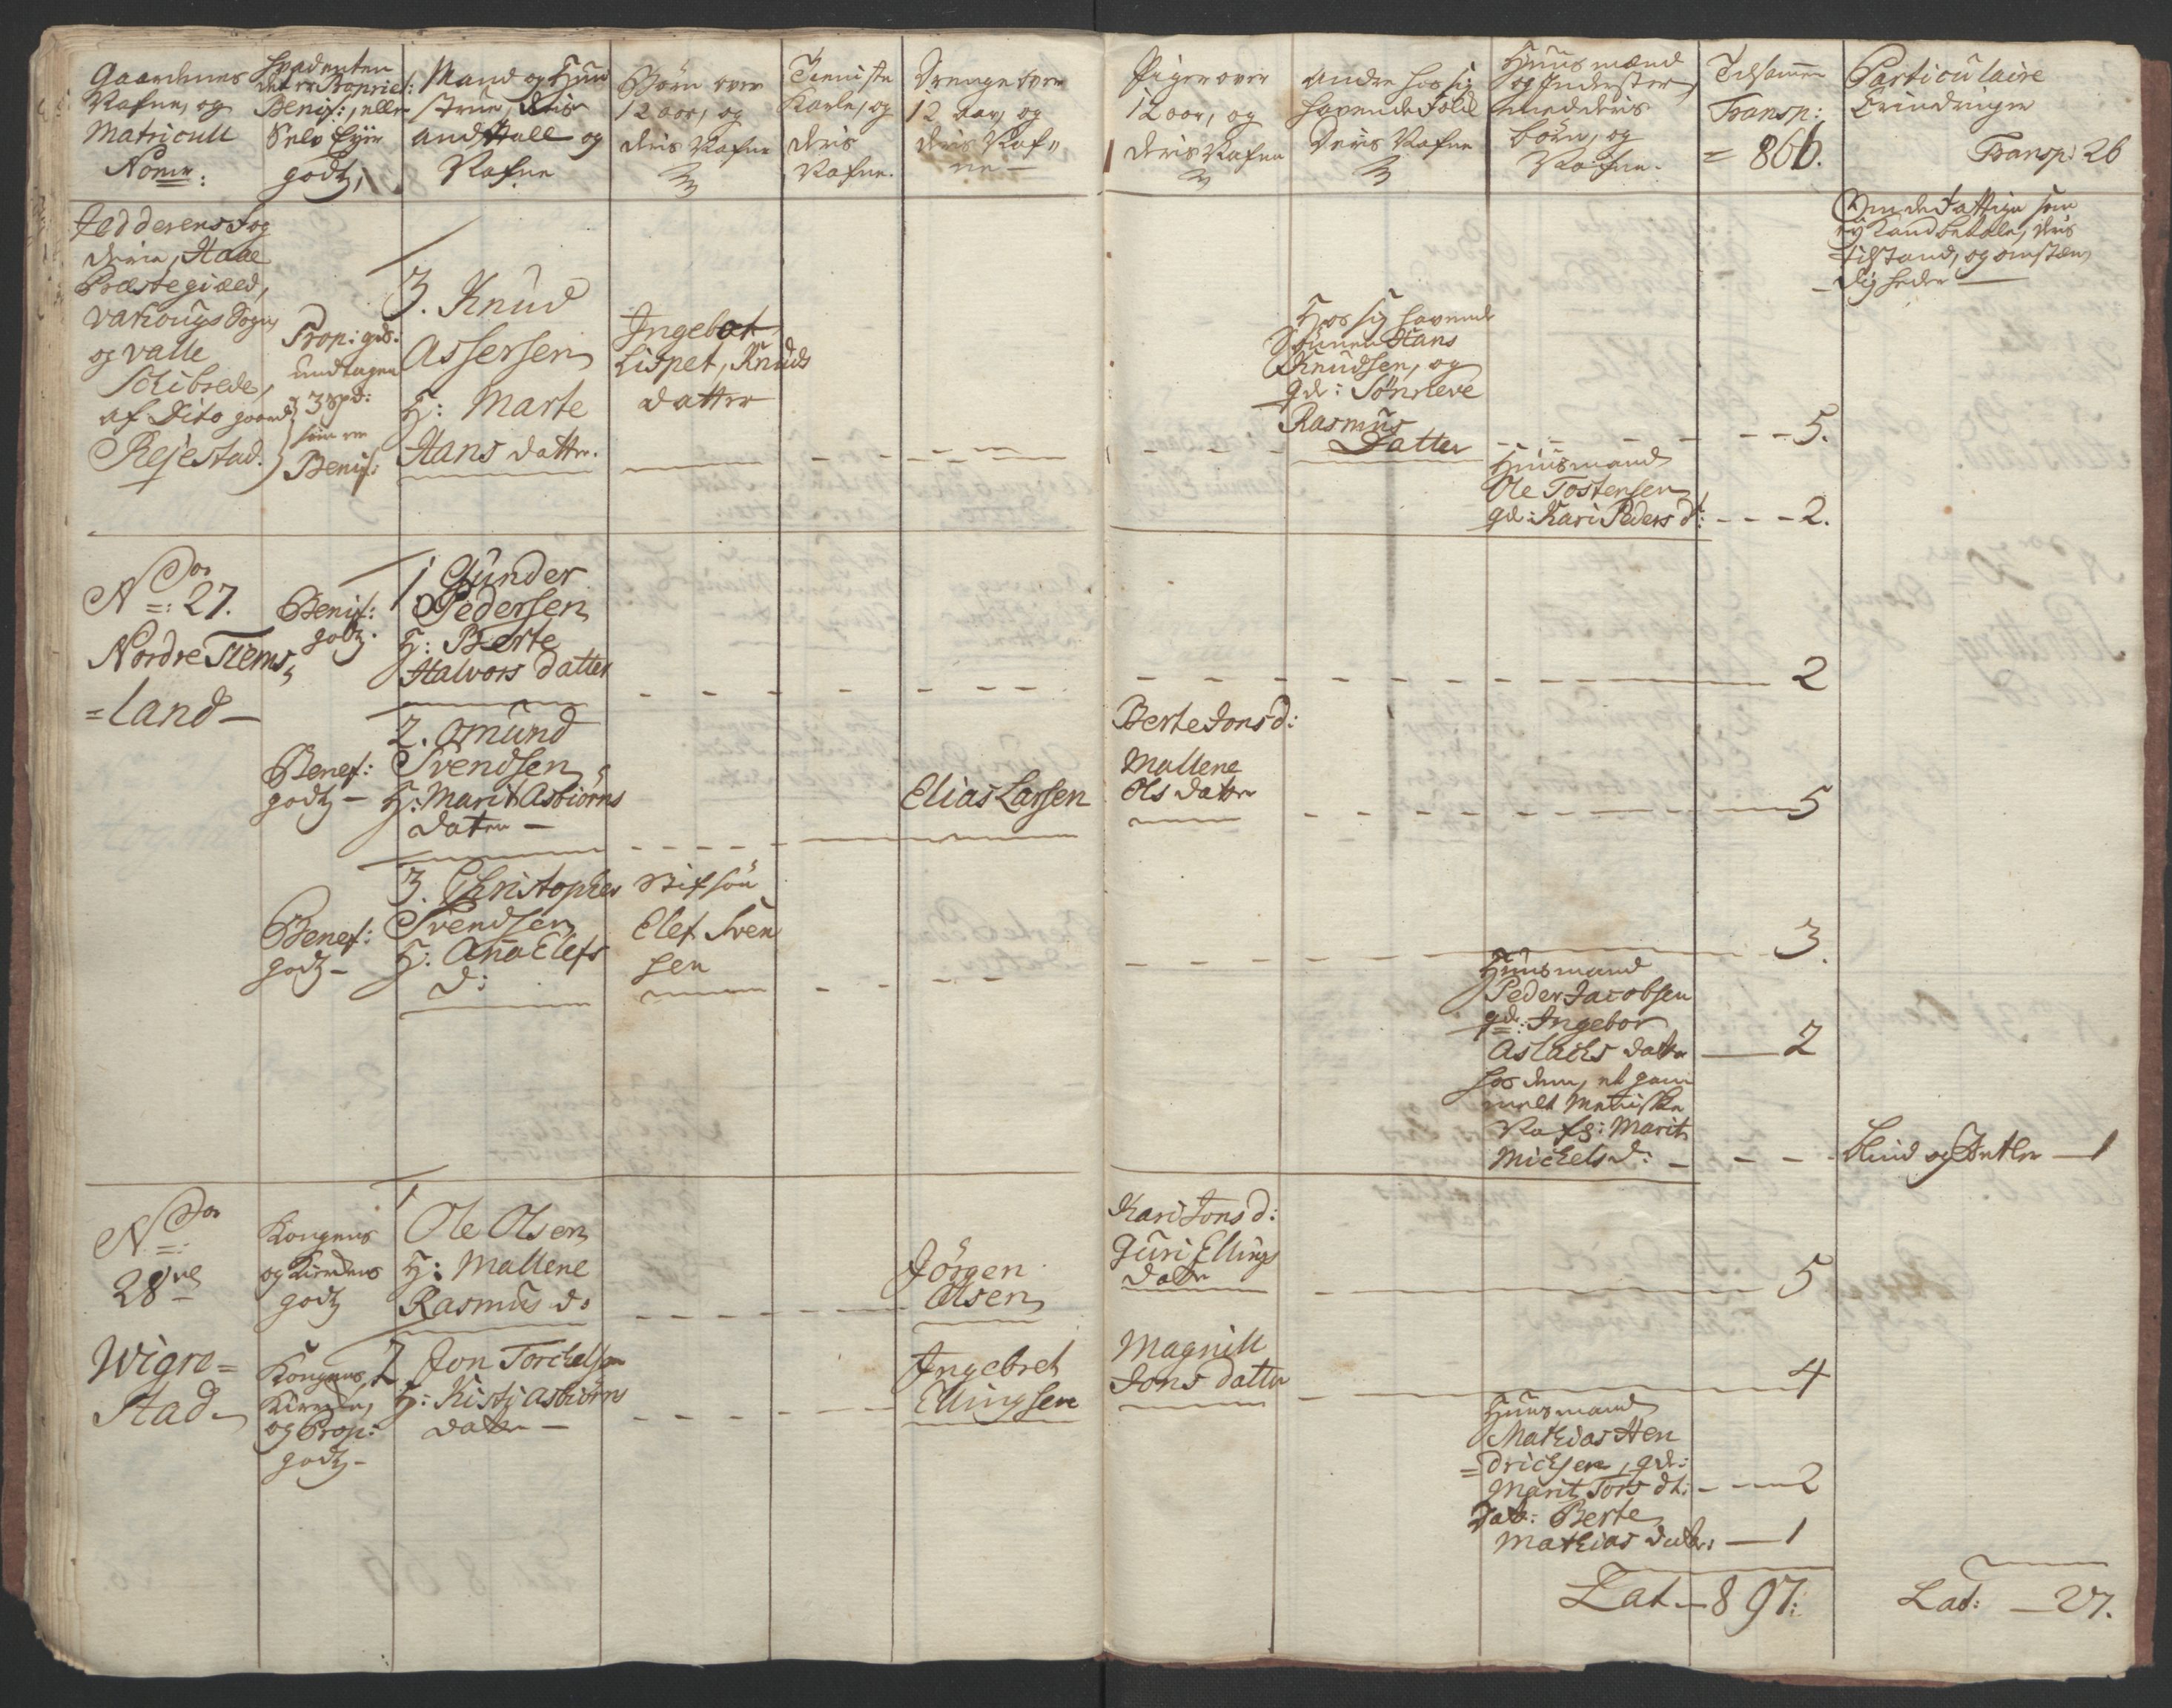 Gaardenes
Nafne, og
Matricull
Nomr:
Spadenten
det er Propriet:
Benif:, eller
Selv Eÿer
godtz,
Mand og Huu
strue, deris
andtall og
Nafne
Børn over
12 aar, og
deris Nafne
Tieniste
Karle, og
deris
Nafne.
Drenge over
12 aar, og
deris Naf„
ne –
Piger over
12 aar, og
deris Nafne
Andre hos sig
havende Folck
deris Nafne
Huusmænd
og Inderster
med deris
børn, og
Nafne.
Tilsamen
Transp:
= 866.
Particulaire
Erindringer
Transp: 26
Jedderens Fog
derie, Haae
Præstegiæld,
Varhougs Sogn,
og Valle
Schibrede,
af Dito gaard
Rejestad.
Prop: gods.
undtagen
3 Spd:
som er
Benif:
3. Knud
Assersen
H: Marte
Hans datter.
Ingebor
Lispet, Knuds
datter
Hos sig havende
Sønnen Hans
Knudsen, og
qd: Sønneve
Rasmus
Datter
5.
Om de Fattige som
ej kand betale, deris
tilstand, og omstæn
digheder
Huusmand
Ole Tostensen
qd: Kari Peders d: - - - 2.
Nor
N=: 27.
Nordre Tiems,
=land –
Benif:
godtz.
1 Gunder
Pedersen
H: Berte
Halvors datter
2
Benef:
godtz –
2. Omund
Svendsen,
H: Marit Asbiørns
datter –
Elias Larsen
Berte Jons d:
Mallene
Ols datter
5
Benef:
godtz –
3. Christopher
Svendsen
H: Anna Elefs
d:
Stifsøn
Elef Sven
sen
3.
Huusmand
Peder Jacobsen
qd: Ingebor
Aslachs datter — 2
hos dem, et gam
melt Meniske
Nafs: Marit
Michels d: –
blind og Sætler — 1
Nor
N=:
28ve
Wigre=
stad –
Kongens
og Kirkens
godtz
1
Ole Olsen
H: Mallene
Rasmus d:
Jörgen
Olsen
Kari Jons d:
Guri Ellings
datter
5
Kongens,
Kirkens,
og Prop:
godtz –
2 Jon Torchelsen
H: Kisti Asbiørns
datter –
Ingebret
Ellingsen
Magnill
Jons datter
4
Huusmand
Mathias Hen
=drichsen, qd:
Marit Tors dt: - - 2
Dat: Berte
Mathias datter: — 1
Lat — 897:
Lat: — 27.